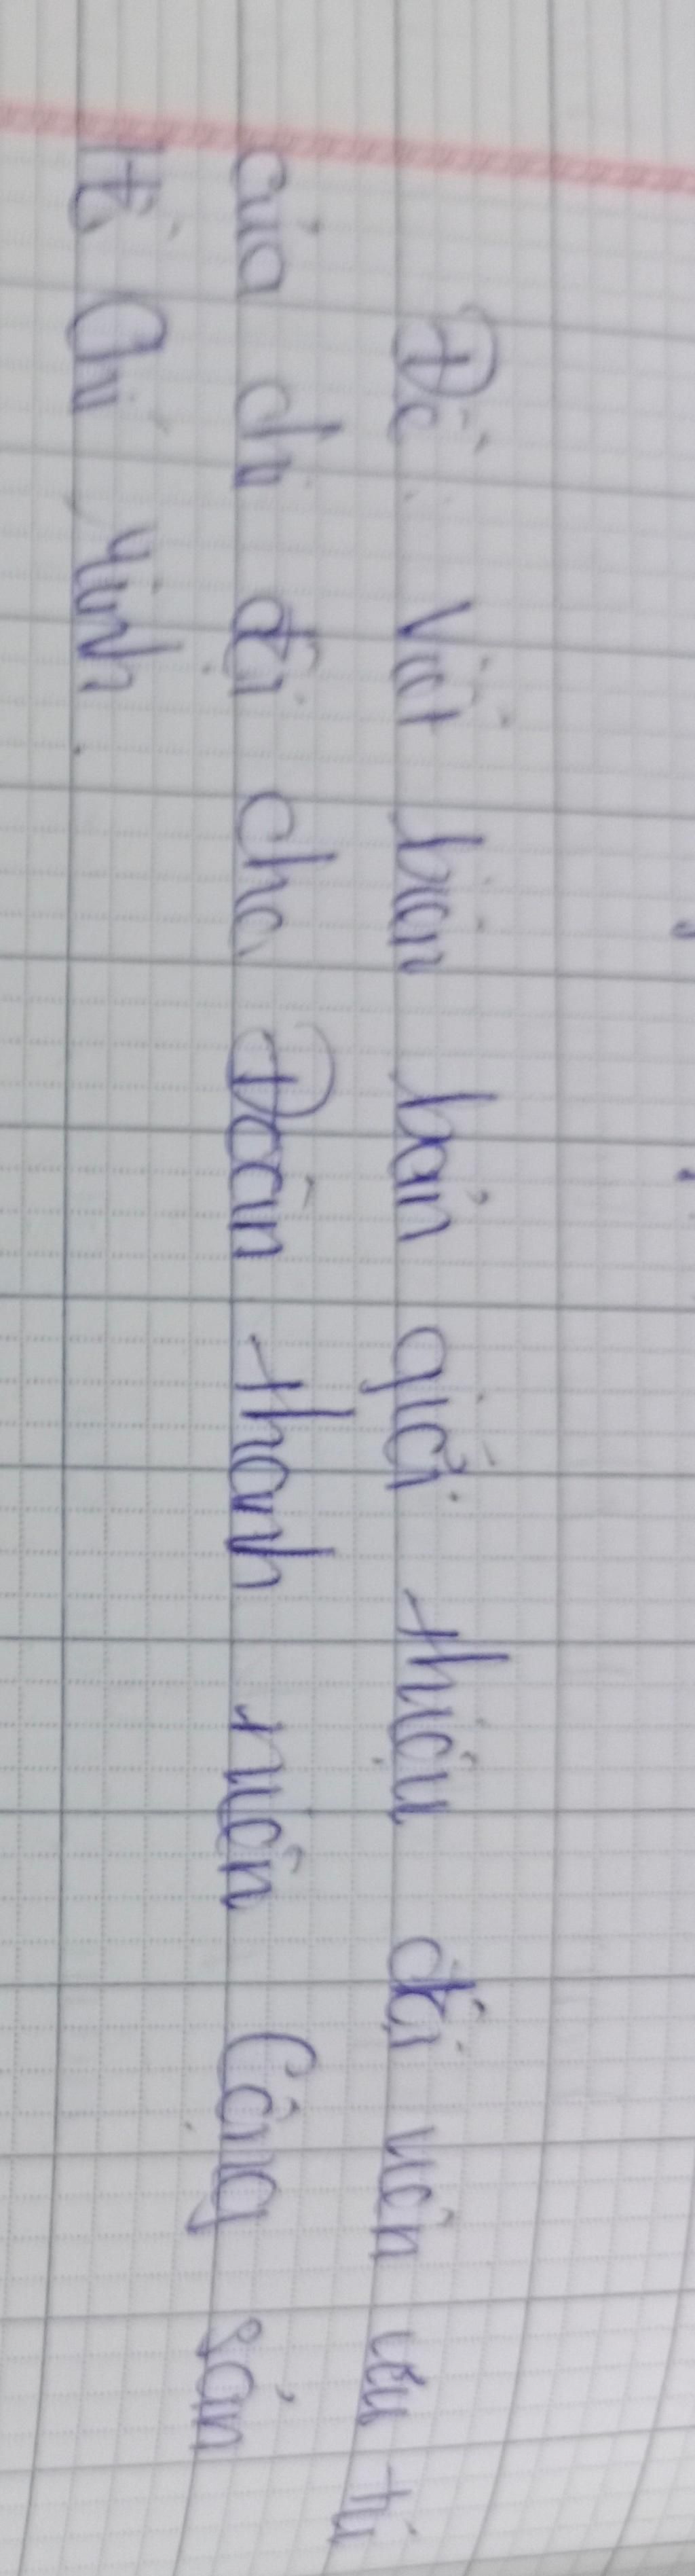 Đề: Viết biên bản giới thiệu đội viên ưu tú
của chi đội cho Đoàn thanh niên Cộng sản
Hồ Chí Minh.